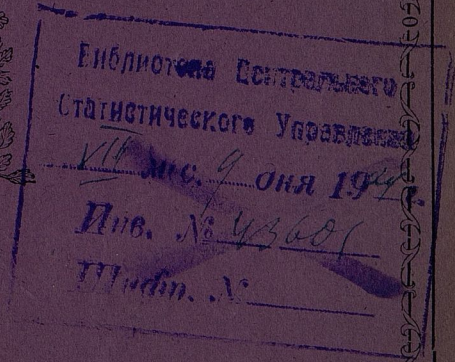 Библиотека Центрального
Статистического Управления
VIII мес. 9 дня 19
Инв. №
Шифр. №